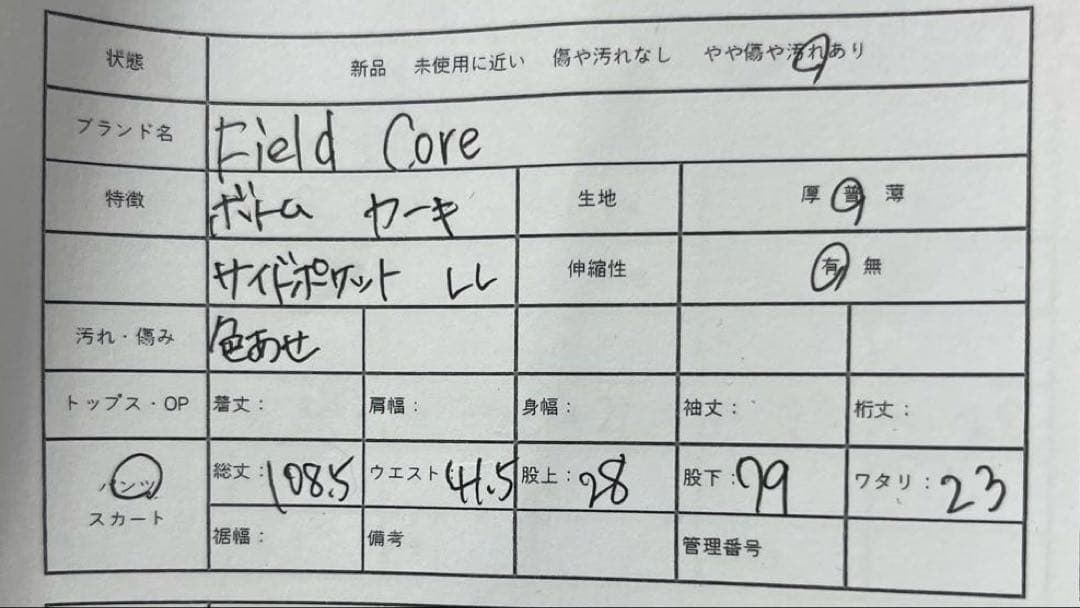 状態 新品 未使用に近い 傷や汚れなし やや傷や汚れあり
ブランド名 Field Core
特徴 ボトム カーキ 生地 厚 普 薄
サイドポケット LL 伸縮性 有 無
汚れ・傷み 色あせ
トップス・OP 着丈: 肩幅: 身幅: 袖丈: 裄丈:
パンツ 総丈:108.5 ウエスト:41.5 股上:28 股下:79 ワタリ:23
スカート 裾幅: 備考 管理番号